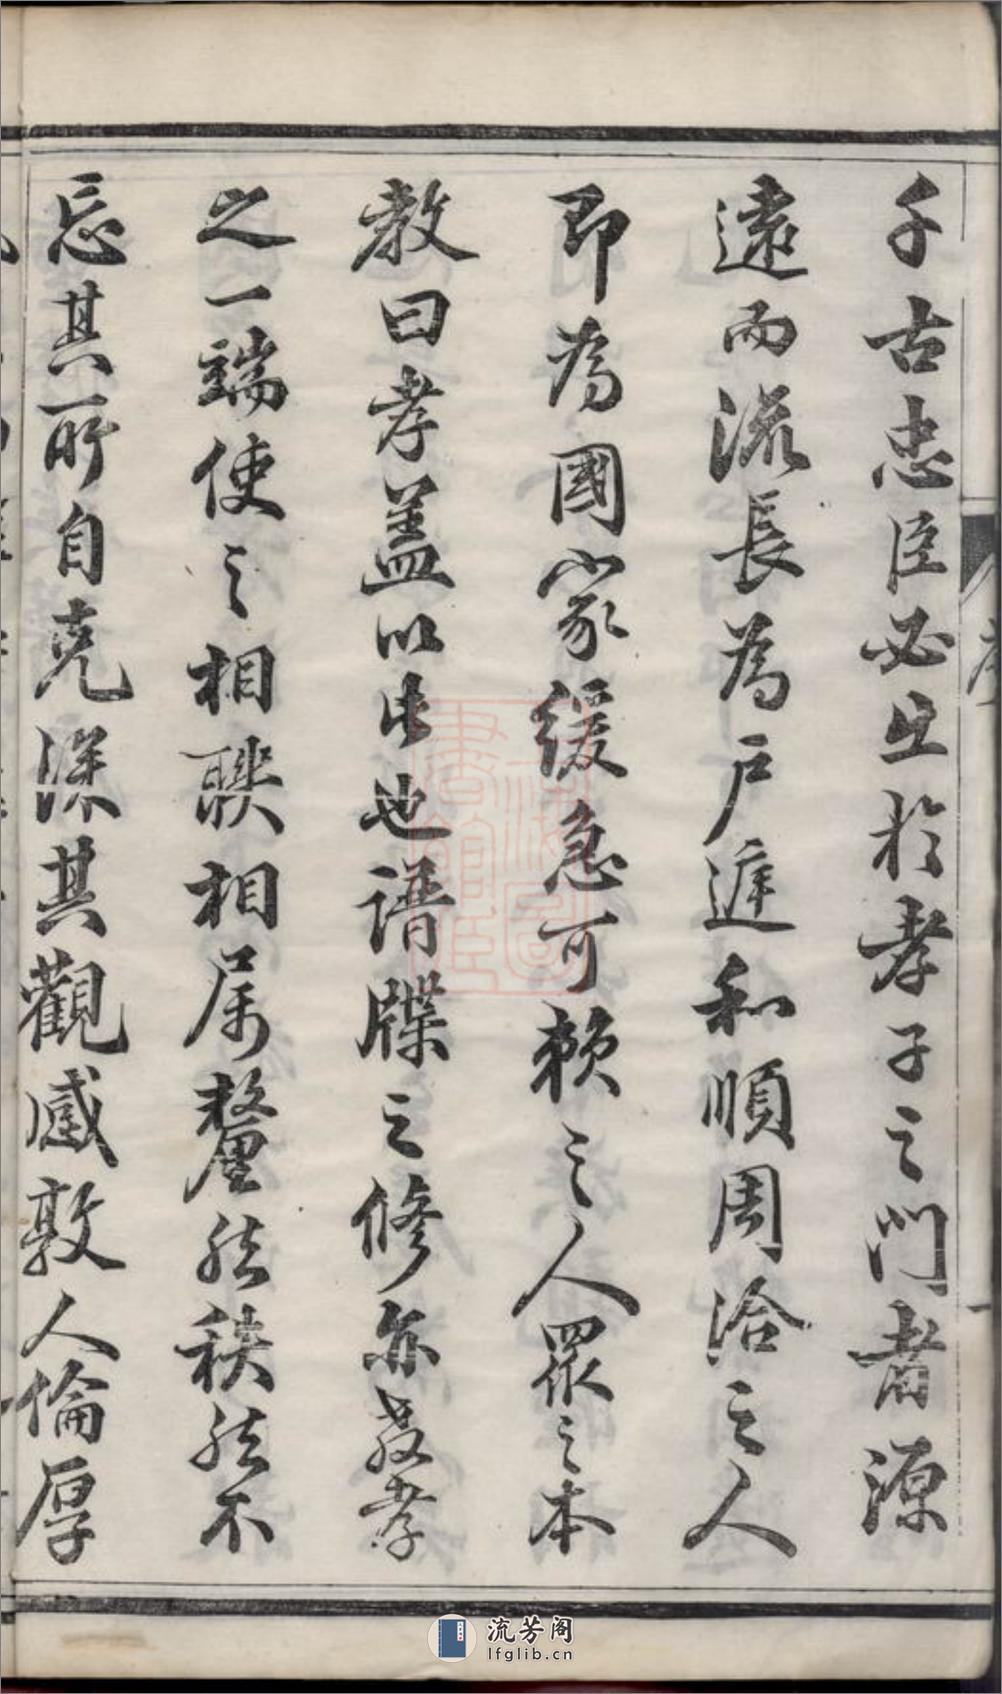 千古忠臣必出於孝子之門者源
遠而流長為戶庭和順周洽之人
即為國家緩急可賴之人眾之本
教曰孝蓋以此也譜牒之修亦教孝
之一端使之相聯相属釐然秩然不
忘其所自克深其觀感敦人倫厚
流芳阁
lfglib.cn